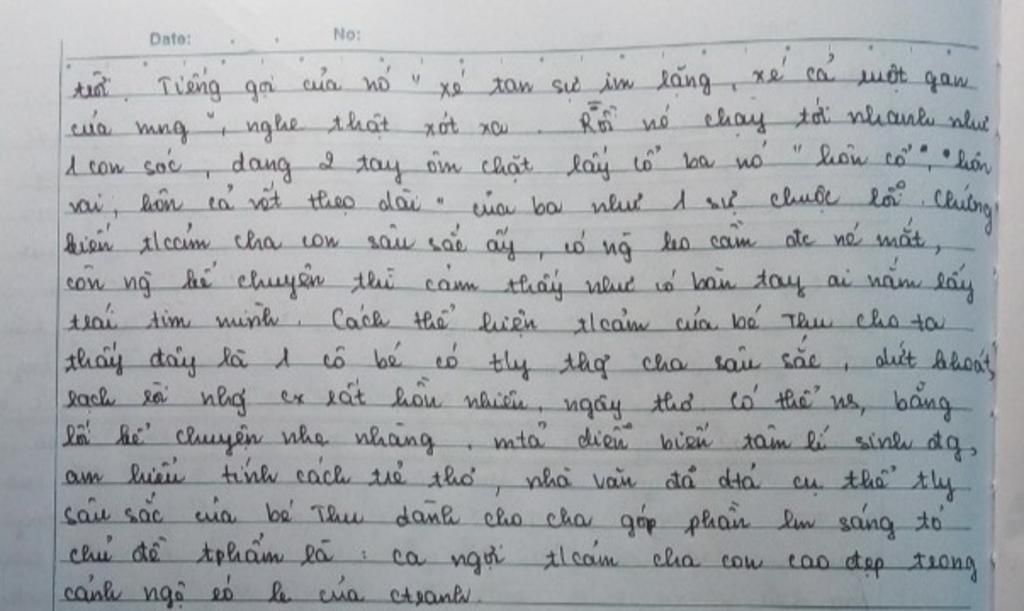 Date: No:
trời. Tiếng gọi của nó " xé tan sự im lặng, xé cả ruột gan
của mng ", nghe thật xót xa. Rồi nó chạy tới nhanh như
1 con sóc, dang 2 tay ôm chặt lấy cổ ba nó " hôn cổ ", " hôn
vai, hôn cả vết thẹo dài " của ba như 1 sự chuộc lỗi. Chứng
kiến t/cảm cha con sâu sắc ấy, có ng ko cầm đc nc mắt,
còn ng kể chuyện thì cảm thấy như có bàn tay ai nắm lấy
trái tim mình. Cách thể hiện t/cảm của bé Thu cho ta
thấy đây là 1 cô bé có tly thg cha sâu sắc, dứt khoát,
rạch ròi nhg cx rất hồn nhiên, ngây thơ. Có thể ns, bằng
lối kể chuyện nhẹ nhàng, mtả diễn biến tâm lí sinh đg,
am hiểu tính cách trẻ thơ, nhà văn đã dtả cụ thể tly
sâu sắc của bé Thu dành cho cha góp phần lm sáng tỏ
chủ đề tphẩm là : ca ngợi t/cảm cha con cao đẹp trong
cảnh ngộ éo le của ctranh.